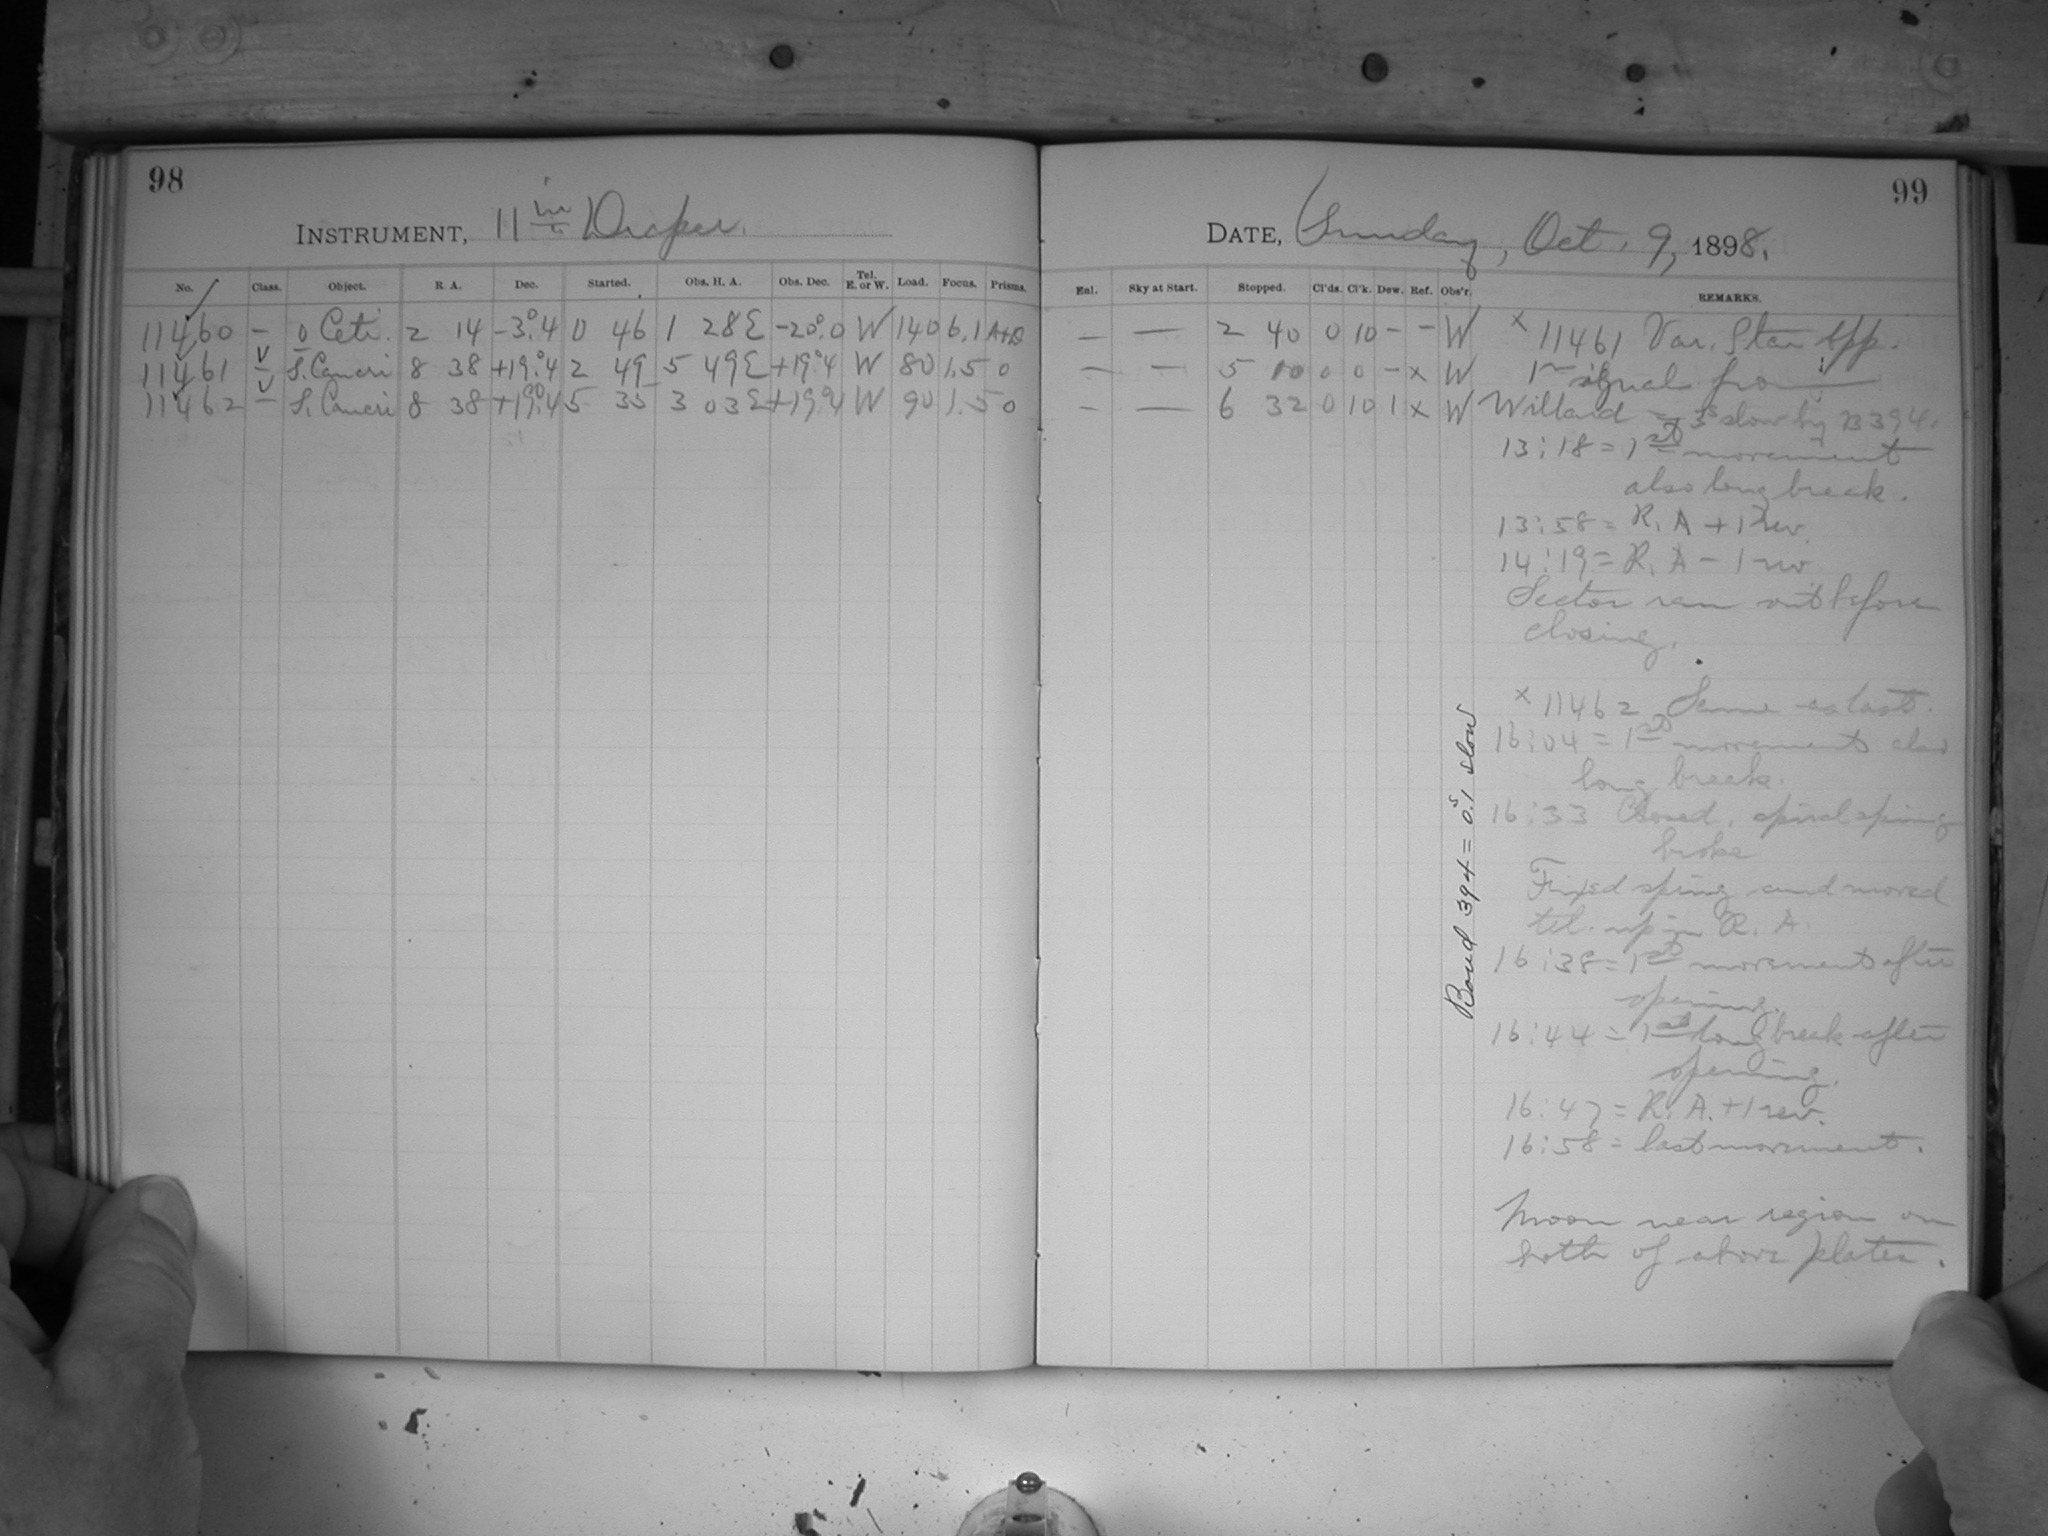 98
INSTRUMENT, 11 in Draper.
No. Class. Object. R. A. Dec. Started. Obs. H. A. Obs. Dec. Tel. E. or W. Load. Focus. Prisms.
11460 – o Ceti. 2 14 –3°.4 0 46 1 28 E –20°.0 W 140 6.1 A+D
11461 V S. Cancri 8 38 +19°.4 2 49 5 49 E +19°.4 W 80 1.5 0
11462 V S. Cancri 8 38 +19°.4 5 35 3 03 E +19°.4 W 90 1.5 0
99
DATE, Sunday, Oct. 9, 1898.
Enl. Sky at Start. Stopped. Cl'ds. Cl'k. Dew. Ref. Obs'r. REMARKS.
– — 2 40 0 10 – – W
– — 5 10 0 0 – x W
– — 6 32 0 10 1 x W
x 11461 Var. Star App.
1st signal from
Willard = 3s slow by B 394.
13:18 = 1st movement
also long break.
13:58 = R. A + 1 rev.
14:19 = R. A – 1 rev
Sector ran out before
closing.
x 11462 Same as last.
16:04 = 1st movement also
long break.
16:33 Closed, spiral spring
broke
Fixed spring and moved
tel. up in R. A.
16:38 = 1st movement after
opening.
16:44 = 1st long break after
opening.
16:47 = R. A. + 1 rev.
16:58 = last movement.
Moon near region on
both of above plates.
Bond 394 = 0s.1 slow